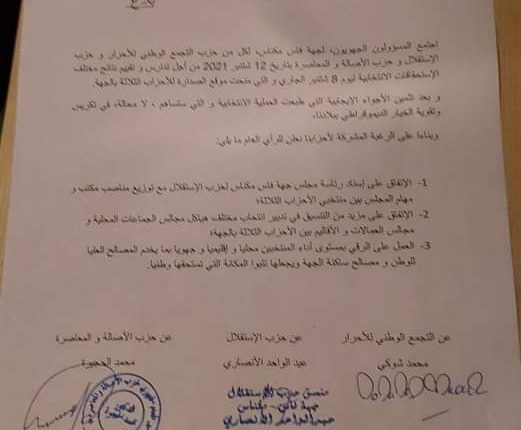 بلاغ
اجتمع المسؤولون الجهويون، لجهة فاس مكناس، لكل من حزب التجمع الوطني للأحرار و حزب
الإستقلال و حزب الأصالة و المعاصرة بتاريخ 12 شتنبر 2021 من أجل تدارس و تقييم نتائج مختلف
الإستحقاقات الانتخابية ليوم 8 شتنبر الجاري و التي منحت موقع الصدارة للأحزاب الثلاثة بالجهة.
و بعد تثمين الأجواء الإيجابية التي طبعت العملية الانتخابية و التي ستساهم ، لا محالة، في تكريس
وتقوية الخيار الديموقراطي ببلادنا،
وبناءا على الرغبة المشتركة لأحزابنا نعلن للرأي العام ما يأتي:
1- الإتفاق على إسناد رئاسة مجلس جهة فاس مكناس لحزب الإستقلال مع توزيع مناصب مكتب و
مهام المجلس بين منتخبي الأحزاب الثلاثة؛
2- الإتفاق على مزيد من التنسيق في تدبير انتخاب مختلف هياكل مجالس الجماعات المحلية و
مجالس العمالات و الأقاليم بين الأحزاب الثلاثة بالجهة؛
3- العمل على الرقي بمستوى أداء المنتخبين محليا و إقليميا و جهويا بما يخدم المصالح العليا
للوطن و مصالح ساكنة الجهة ويجعلها تتبوأ المكانة التي تستحقها وطنيا.
عن التجمع الوطني للأحرار عن حزب الإستقلال عن حزب الأصالة و المعاصرة
محمد شوكي عبد الواحد الأنصاري محمد الحجيرة
منسق حزب الإستقلال
جهة فاس - مكناس
عبد الواحد الأنصاري